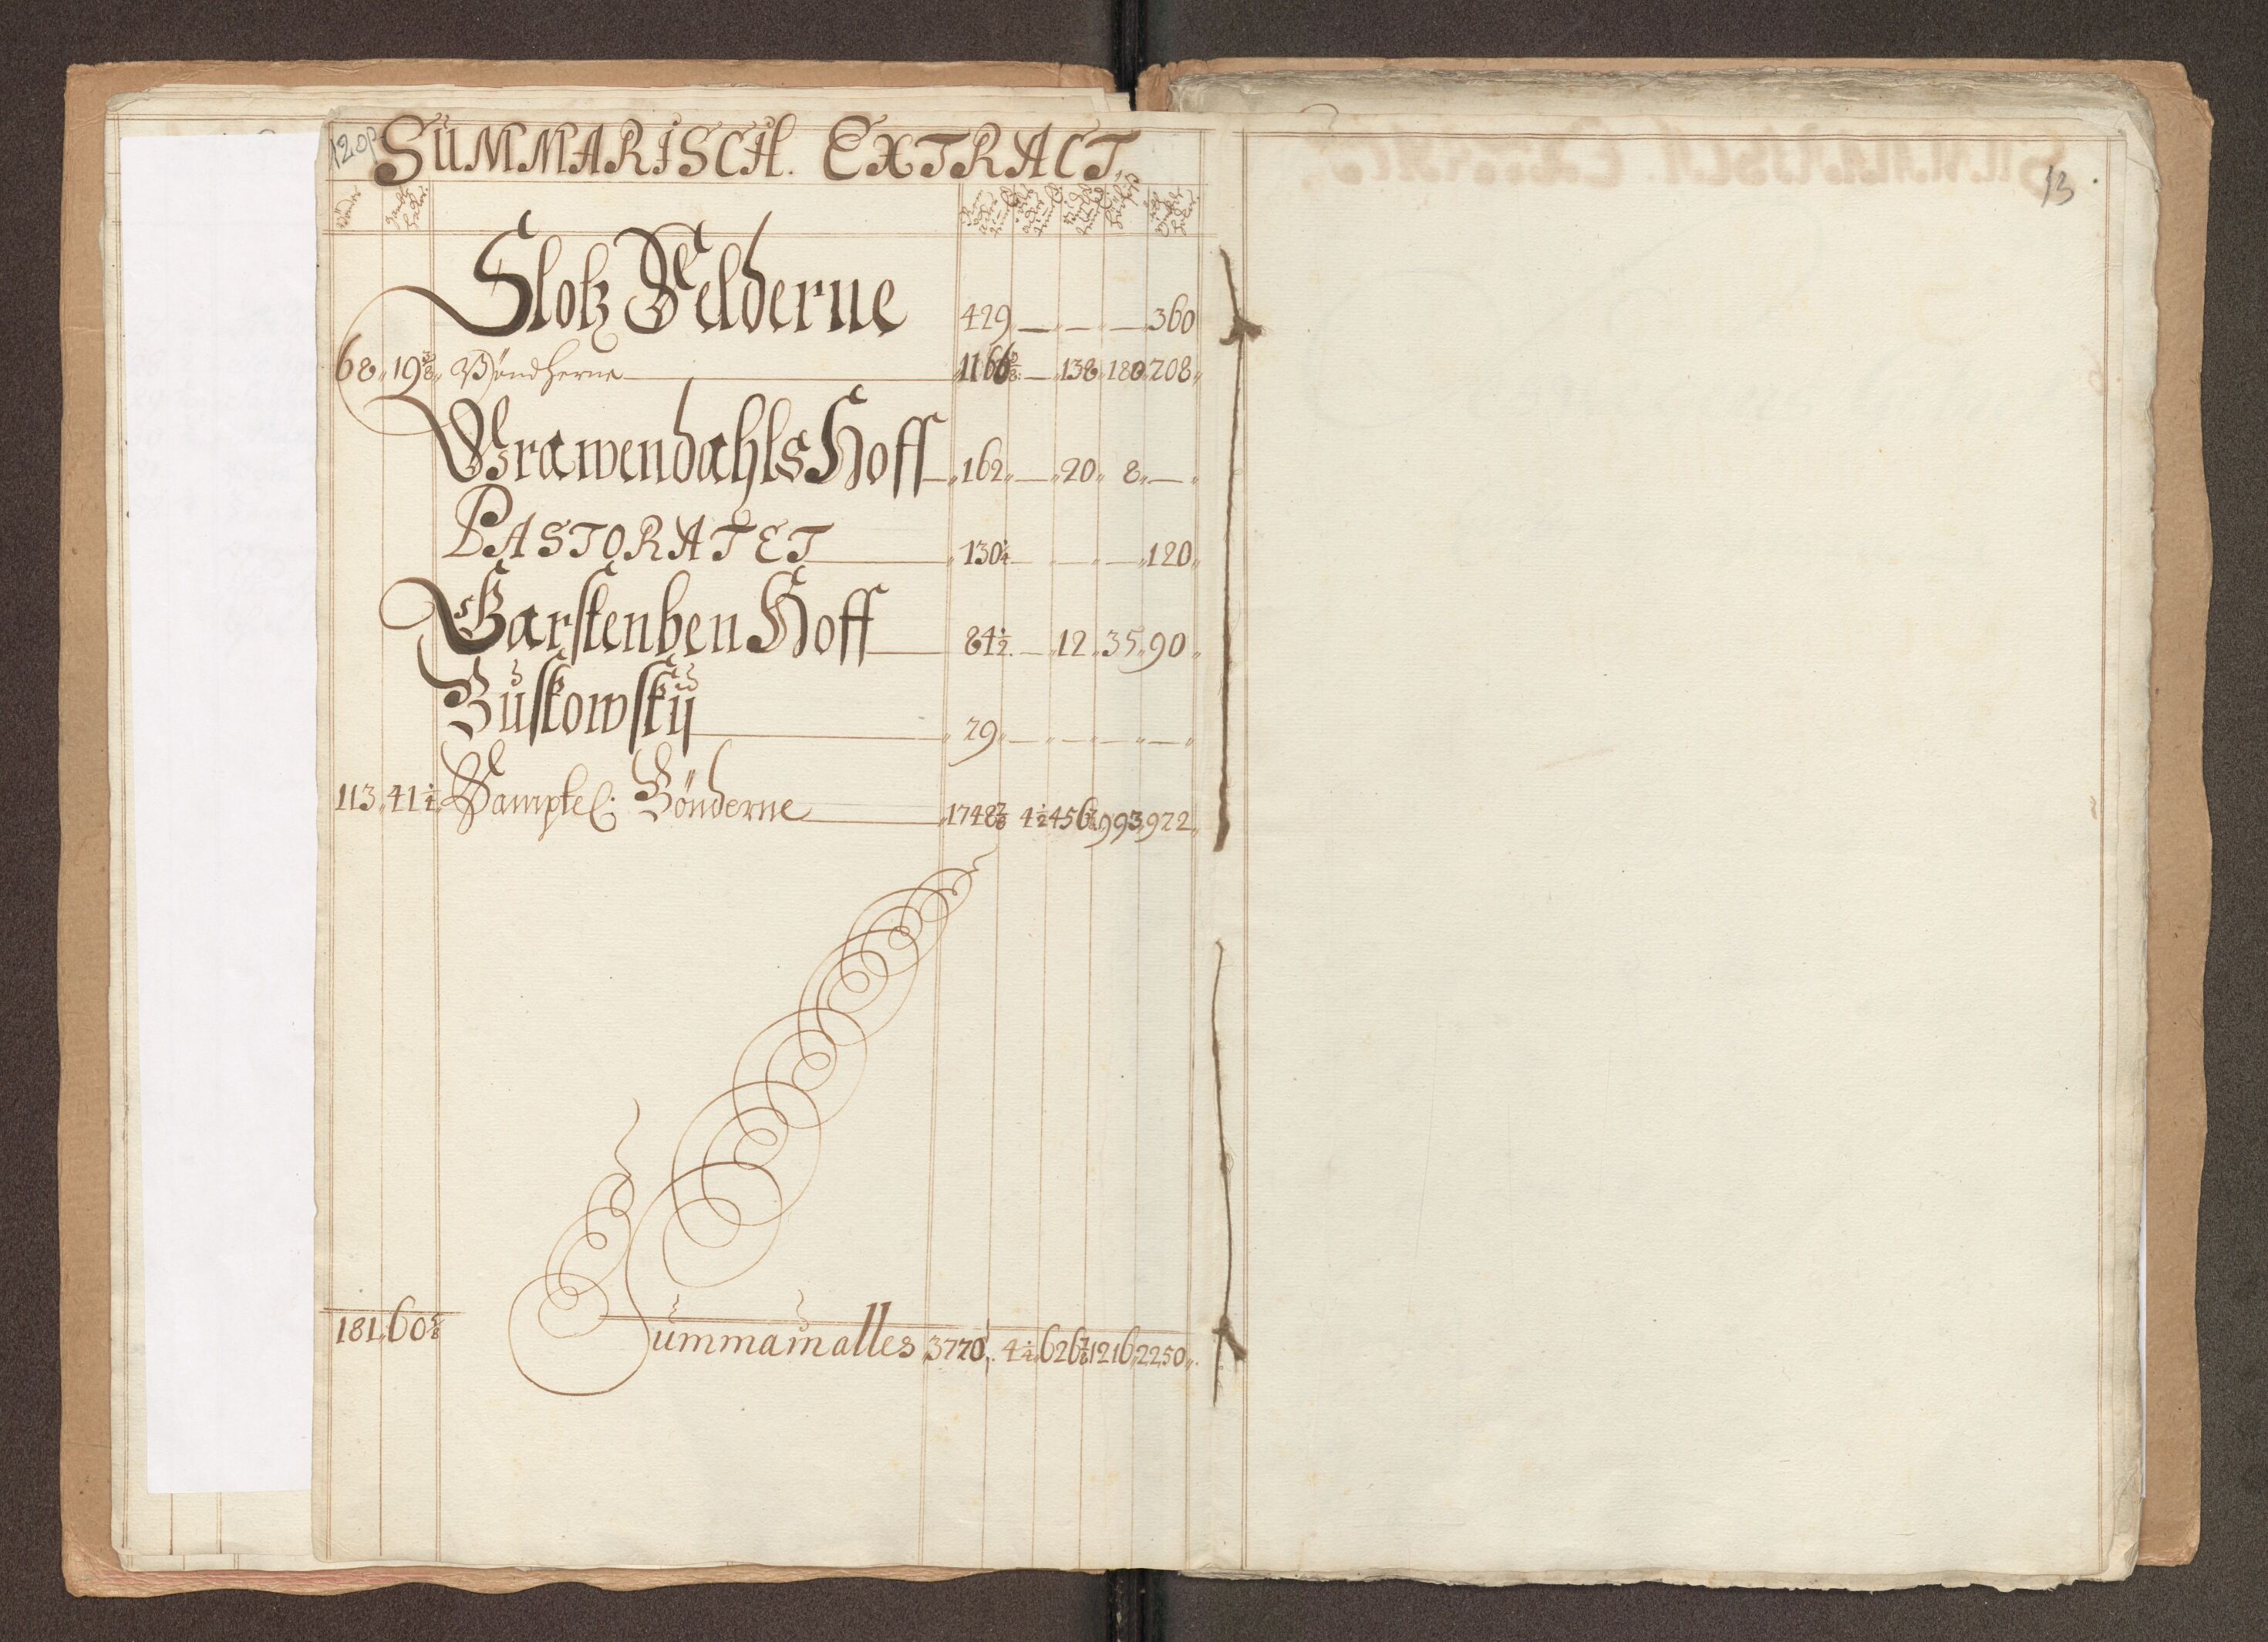 120p
SUMMARISCH. EXTRACT.
Slotz Felderne 429 — — — 360
68 19 3/8 Bönderne 1166 3/8 — 138 180 708
Grawendahls Hoff 162 — 20 8 —
PASTORATET 130 1/4 — — — 120
Garstenben Hoff 84 1/2 — 12 35 90
Buskowskij 29 — — — —
113 41 1/4 Samptel: Bönderne 1748 7/8 4 1/2 456 7/8 993 972
181 60 5/8 Summa in alles 3720 4 1/2 626 7/8 1216 2250
13